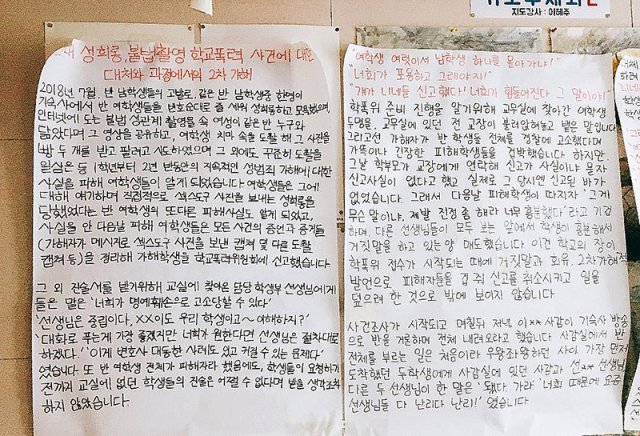 지도강사 : 이혜주
내 성희롱, 불법촬영 학교폭력 사건에 대한
대처와 과정에서의 2차 가해
2018년 7월, 반 남학생들의 고발로 같은 반 남학생중 한명이
기숙사에서 반 여학생들을 번호순대로 줄 세워 성희롱하고 모욕했으며,
인터넷에 도는 불법 성관계 촬영물 속 여성이 같은 반 누구와
닮았다며 그 영상을 공유하고, 여학생 치마 속을 도촬 해 그 사진을
빵 두 개를 받고 팔려고 시도하였으며 그 외에도 꾸준히 도촬을
일삼은 등 1학년부터 2년 반동안의 지속적인 성범죄 가해에 대한
사실을 피해 여학생들이 알게 되었습니다 여학생들은 그에
대해 얘기하며 직접적으로 섹스도구 사진을 보내는 성희롱을
당했었다는 반 여학생의 또다른 피해사실도 알게 되었고,
사실을 안 다음날 피해 여학생들은 모든 사건의 증언과 증거들
(가해자가 메시지로 섹스도구 사진을 보낸 캡쳐 및 다른 도촬
캡쳐 등)을 정리해 가해학생을 학교폭력위원회에 신고했습니다.
그 외 진술서를 받기위해 교실에 찾아온 담당 학생부 선생님에게
들은 말은 '너희가 명예훼손으로 고소당할 수 있다'
'선생님은 중립이다, XX이도 우리 학생이고~ 이해하지?'
'대화로 푸는게 가장 좋겠지만 너희가 원한다면 선생님은 절차대로
하겠다.' '이게 변호사 대동한 사례도 있고 커질 수 있는 문제다'
였습니다 또 반 여학생 전체가 피해자라 했음에도, 학생들이 요청하기
전까지 교실에 없던 학생들의 진술은 어쩔 수 없다며 받을 생각조차
하지 않았습니다.
"여학생 여럿이서 남학생 하나를 몰아가냐!"
"너희가 포용하고 그래야지!"
"걔가 니네들 신고했다! 너희가 힘들어진다 그 말이야!"
학폭위 준비 진행을 알기위해 교무실에 찾아간 여학생
두명을, 교무실에 있던 전 교장이 불러앉혀놓고 뱉은 말입니다
그리고선 가해자가 반 학생들 전체를 경찰에 고소했다며
가뜩이나 긴장한 피해학생들을 겁박했습니다 하지만,
그날 학부모가 교장에게 연락해 신고가 사실이냐 묻자
신고사실이 없다고 했고 실제로 그 당시엔 신고된 바가
없었습니다. 그래서 다음날 피해학생이 따지자 '그게
무슨 말이냐. 제발 진정 좀 해라 너무 흥분했다' 라고 기만
하며, 다른 선생님들이 모두 보는 앞에서 학생이 흥분해서
거짓말을 하고 있는양 매도했습니다 이건 학교의 장이
학폭위 접수가 시작되는 때에 거짓말과 회유, 2차가해적
발언으로 피해자들을 겁 줘 신고를 취소시키고 일을
덮으려 한 것으로 밖에 보이지 않습니다
사건조사가 시작되고 며칠뒤 저녁 이** 사감이 기숙사 방송
으로 반을 거론하며 전체 내려오라고 했습니다 사감실에서 반
전체를 부르는 일은 처음이라 우왕좌왕하던 사이 가장 먼저
도착했던 두학생에게 사감실에 있던 사감과 선** 선생님
다른 두 선생님이 한 말은 '됐다 가라' '너희 때문에 요즘
선생님들 다 난리다 난리!' 였습니다